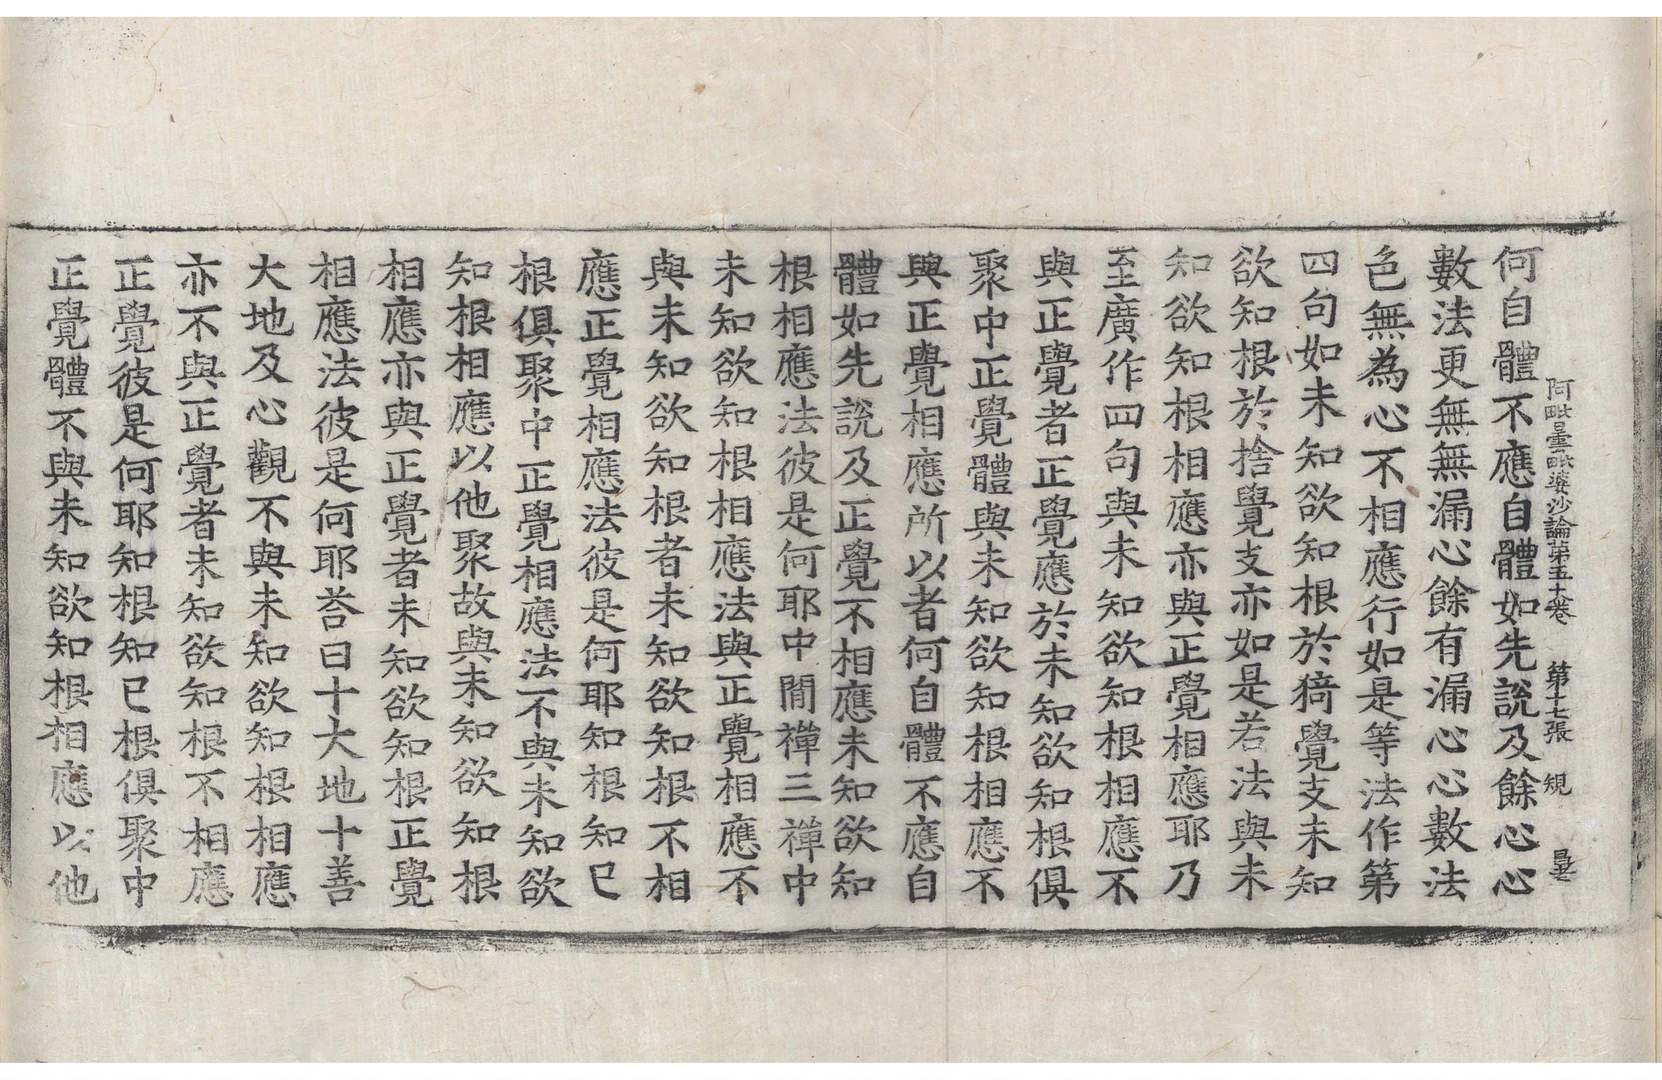 阿毗曇毗婆沙論第五十卷　第十七張　規　曇
何自體不應自體如先說及餘心心
數法更無無漏心餘有漏心心數法
色無為心不相應行如是等法作第
四句如未知欲知根於猗覺支未知
欲知根於捨覺支亦如是若法與未
知欲知根相應亦與正覺相應耶乃
至廣作四句與未知欲知根相應不
與正覺者正覺應於未知欲知根俱
聚中正覺體與未知欲知根相應不
與正覺相應所以者何自體不應自
體如先說及正覺不相應未知欲知
根相應法彼是何耶中間禪三禪中
未知欲知根相應法與正覺相應不
與未知欲知根者未知欲知根不相
應正覺相應法彼是何耶知根知已
根俱聚中正覺相應法不與未知欲
知根相應以他聚故與未知欲知根
相應亦與正覺者未知欲知根正覺
相應法彼是何耶荅曰十大地十善
大地及心觀不與未知欲知根相應
亦不與正覺者未知欲知根不相應
正覺彼是何耶知根知已根俱聚中
正覺體不與未知欲知根相應以他